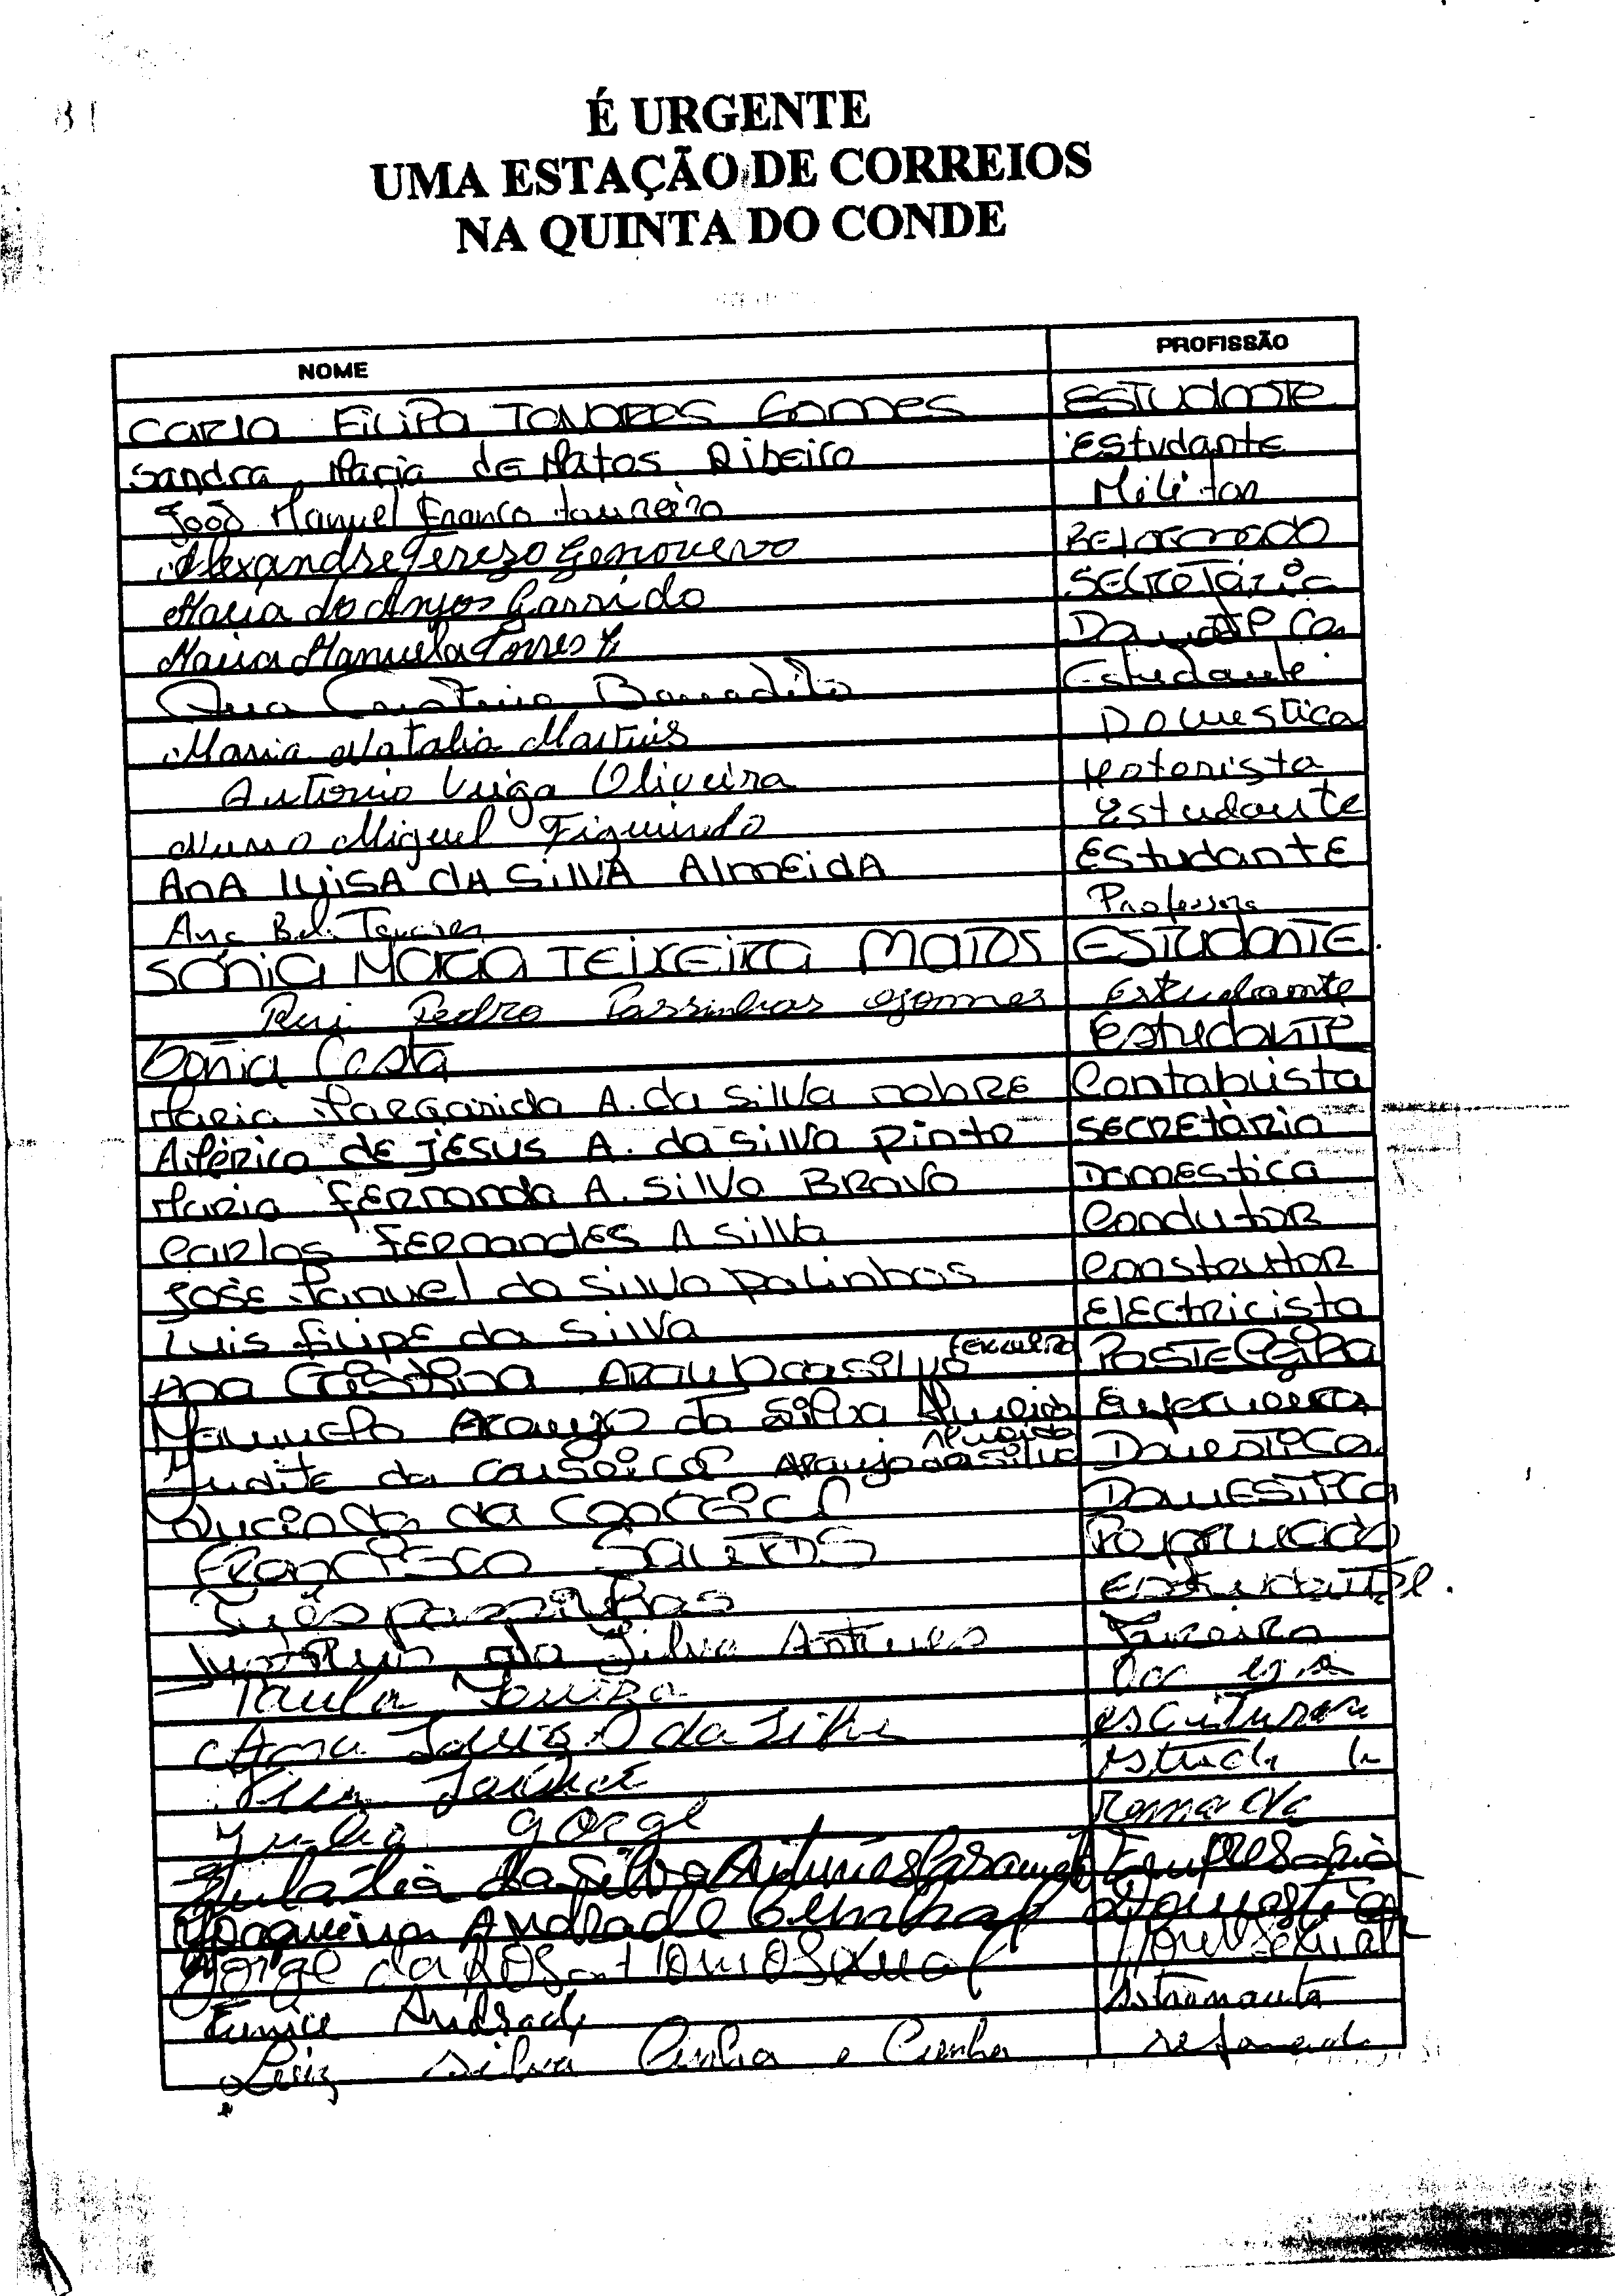 81
É URGENTE
UMA ESTAÇÃO DE CORREIOS
NA QUINTA DO CONDE
NOME PROFISSÃO
Carla Filipa Tavares Gomes Estudante
Sandra Maria de Matos Ribeiro Estudante
João Manuel Franco Loureiro Militar
Alexandre Terezo Genoveno Reformado
Maria dos Anjos Garrido Secretária
Maria Manuela Torres
Ana Cristina Estudante
Maria Natalia Martins Domestica
Antonio Veiga Oliveira Motorista
Nuno Miguel Figueiredo Estudante
Ana Luisa da Silva Almeida Estudante
Ana Bel. Tavares Professora
Sónia Maria Teixeira Matos Estudante.
Rui Pedro Passinhas Gomes Estudante
Sónia Costa Estudante
Maria Margarida A. da Silva Nobre Contabilista
Américo de Jesus A. da Silva Pinto Secretário
Maria Fernanda A. Silva Bravo Domestica
Carlos Fernandes A Silva Condutor
José Manuel da Silva Palinhos Construtor
Luis Filipe da Silva Electricista
Ana Cristina Araujo da Silva Ferreira Pasteleira
Manuela Araujo da Silva Almeida Enfermeira
Judite da Conseição Araujo da Silva Almeida Domestica
Lucinda da Conceição Domestica
Francisco Santos Reformado
Inês Passinhas Estudante.
da Silva Antunes
Paula
Ana Luisa O da Silva escritura
Julia Gorge
Eulália da Silva Antunes Empresaria
Joaquina Andrade Domestica
Jorge da Rosa Homosexual Homosexual
Eunice Andrade Astronauta
Luiz Silva Cunha e Cunha